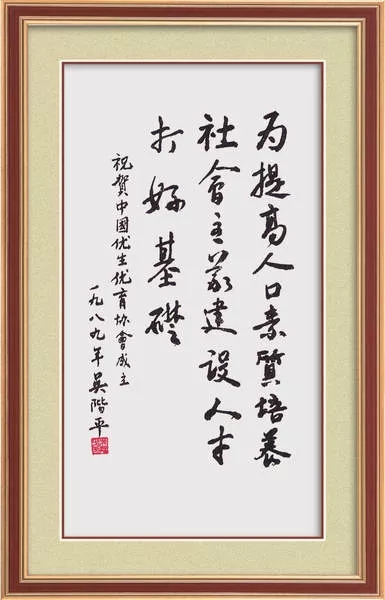 为提高人口素質培养
社會主义建设人才
打好基礎
祝賀中國优生优育协會成立
一九八九年 吴階平